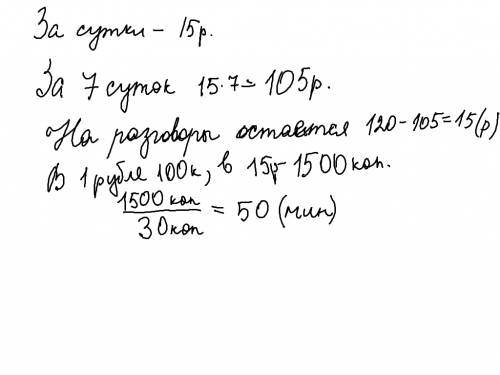 За сутки - 15р.
За 7 суток 15·7=105р.
На разговоры остается 120-105=15(р)
В 1 рубле 100к, в 15р-1500коп.
1500 коп
30коп
= 50 (мин)